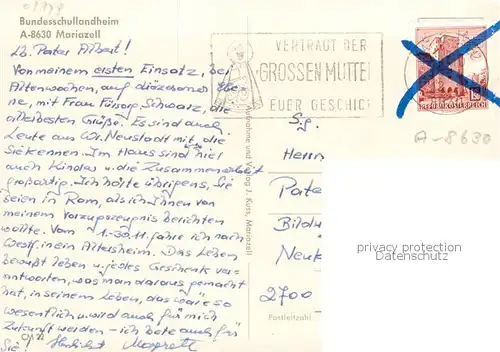 Bundesschullandheim
A-8630 Mariazell
Lb. Pater Albert!
Von meinem ersten Einsatz, bei
Altenwochen, auf diözesaner Ebe
ne, mit Frau Fürsorg. Schwarz, die
allerbesten Grüße. Es sind auch
Leute aus Wr. Neustadt mit, die
Sie kennen. Im Haus sind viel
auch Kinder u. die Zusammenarbeit
großartig. Ich hörte übrigens, Sie
seien in Rom, als ich Ihnen von
meinem Vorzugszeugnis berichten
wollte. Vom 1.-30.11. fahre ich nach
in ein Altersheim. Das Leben
bewußt leben u. jedes Geschenk ver-
antworten, was man daraus gemacht
hat, in seinem Leben, das wäre so
wesentlich u. wird auch für mich
Zukunft werden - ich bete auch für
Sie! Herzlichst
VERTRAUT DER
GROSSEN MUTTE
EUER GESCHIC
REPUBLIK ÖSTERREICH
A-8630
Aufnahme und Verlag J. Kuss, Mariazell
Sg.
Herrn
Pate
Bildu
Neuk
2700
Postleitzahl
privacy protection
Datenschutz